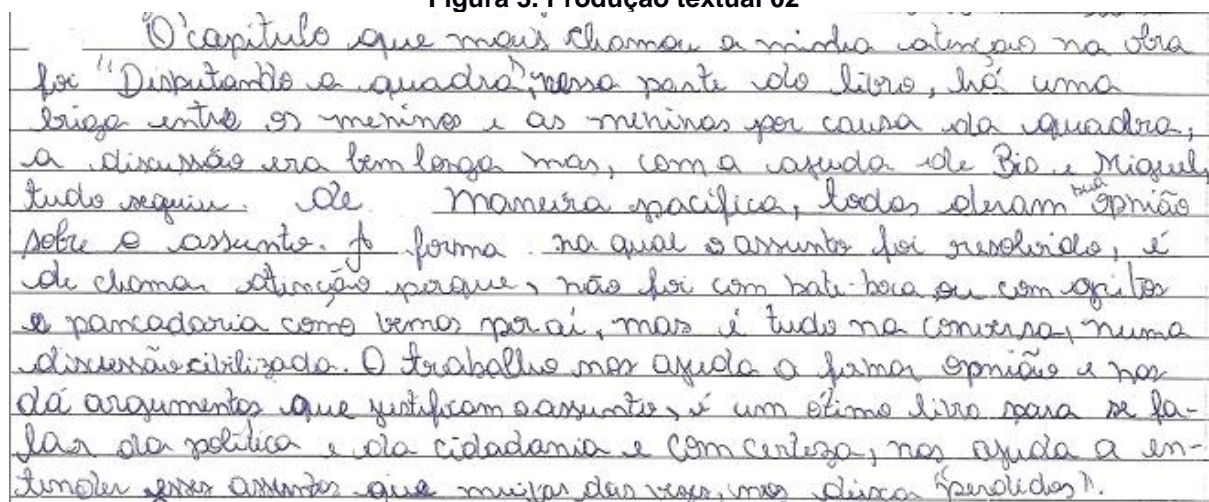 Figura 3. Produção textual 02
O capítulo que mais chamou a minha atenção na obra
foi "Disputando a quadra", nessa parte do livro, há uma
briga entre os meninos e as meninas por causa da quadra,
a discussão era bem longa mas, com a ajuda de Bia e Miguel,
tudo seguiu de maneira pacífica, todos deram sua opinião
sobre o assunto. A forma na qual o assunto foi resolvido, é
de chamar atenção porque, não foi com bate-boca ou com gritos
e pancadaria como vemos por aí, mas é tudo na conversa, numa
discussão civilizada. O trabalho nos ajuda a formar opinião e nos
dá argumentos que justificam o assunto, é um ótimo livro para se fa-
lar da política e da cidadania e com certeza, nos ajuda a en-
tender esses assuntos que muitas das vezes, nos deixa "perdidos".